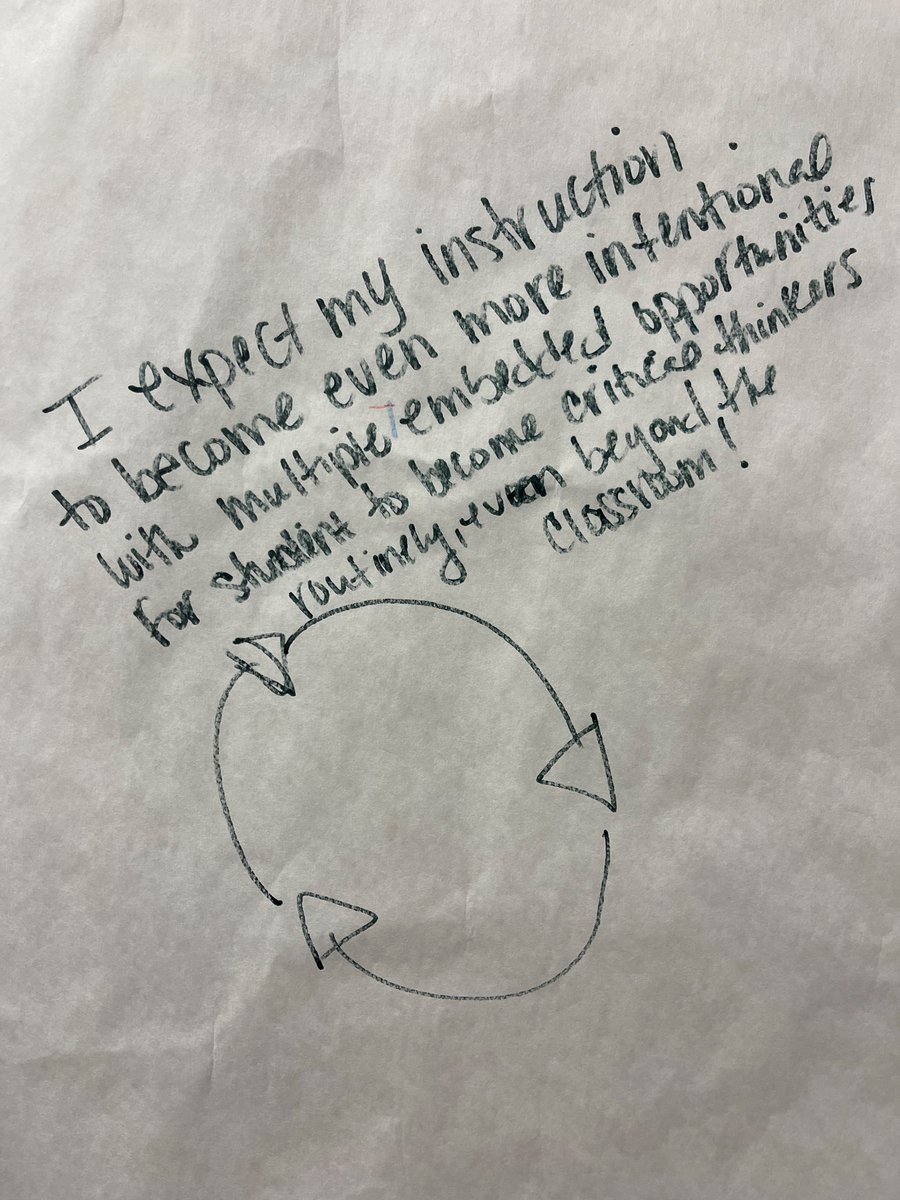 I expect my instruction
to become even more intentional
with multiple embedded opportunities
for student to become critical thinkers
routinely, even beyond the
classroom!